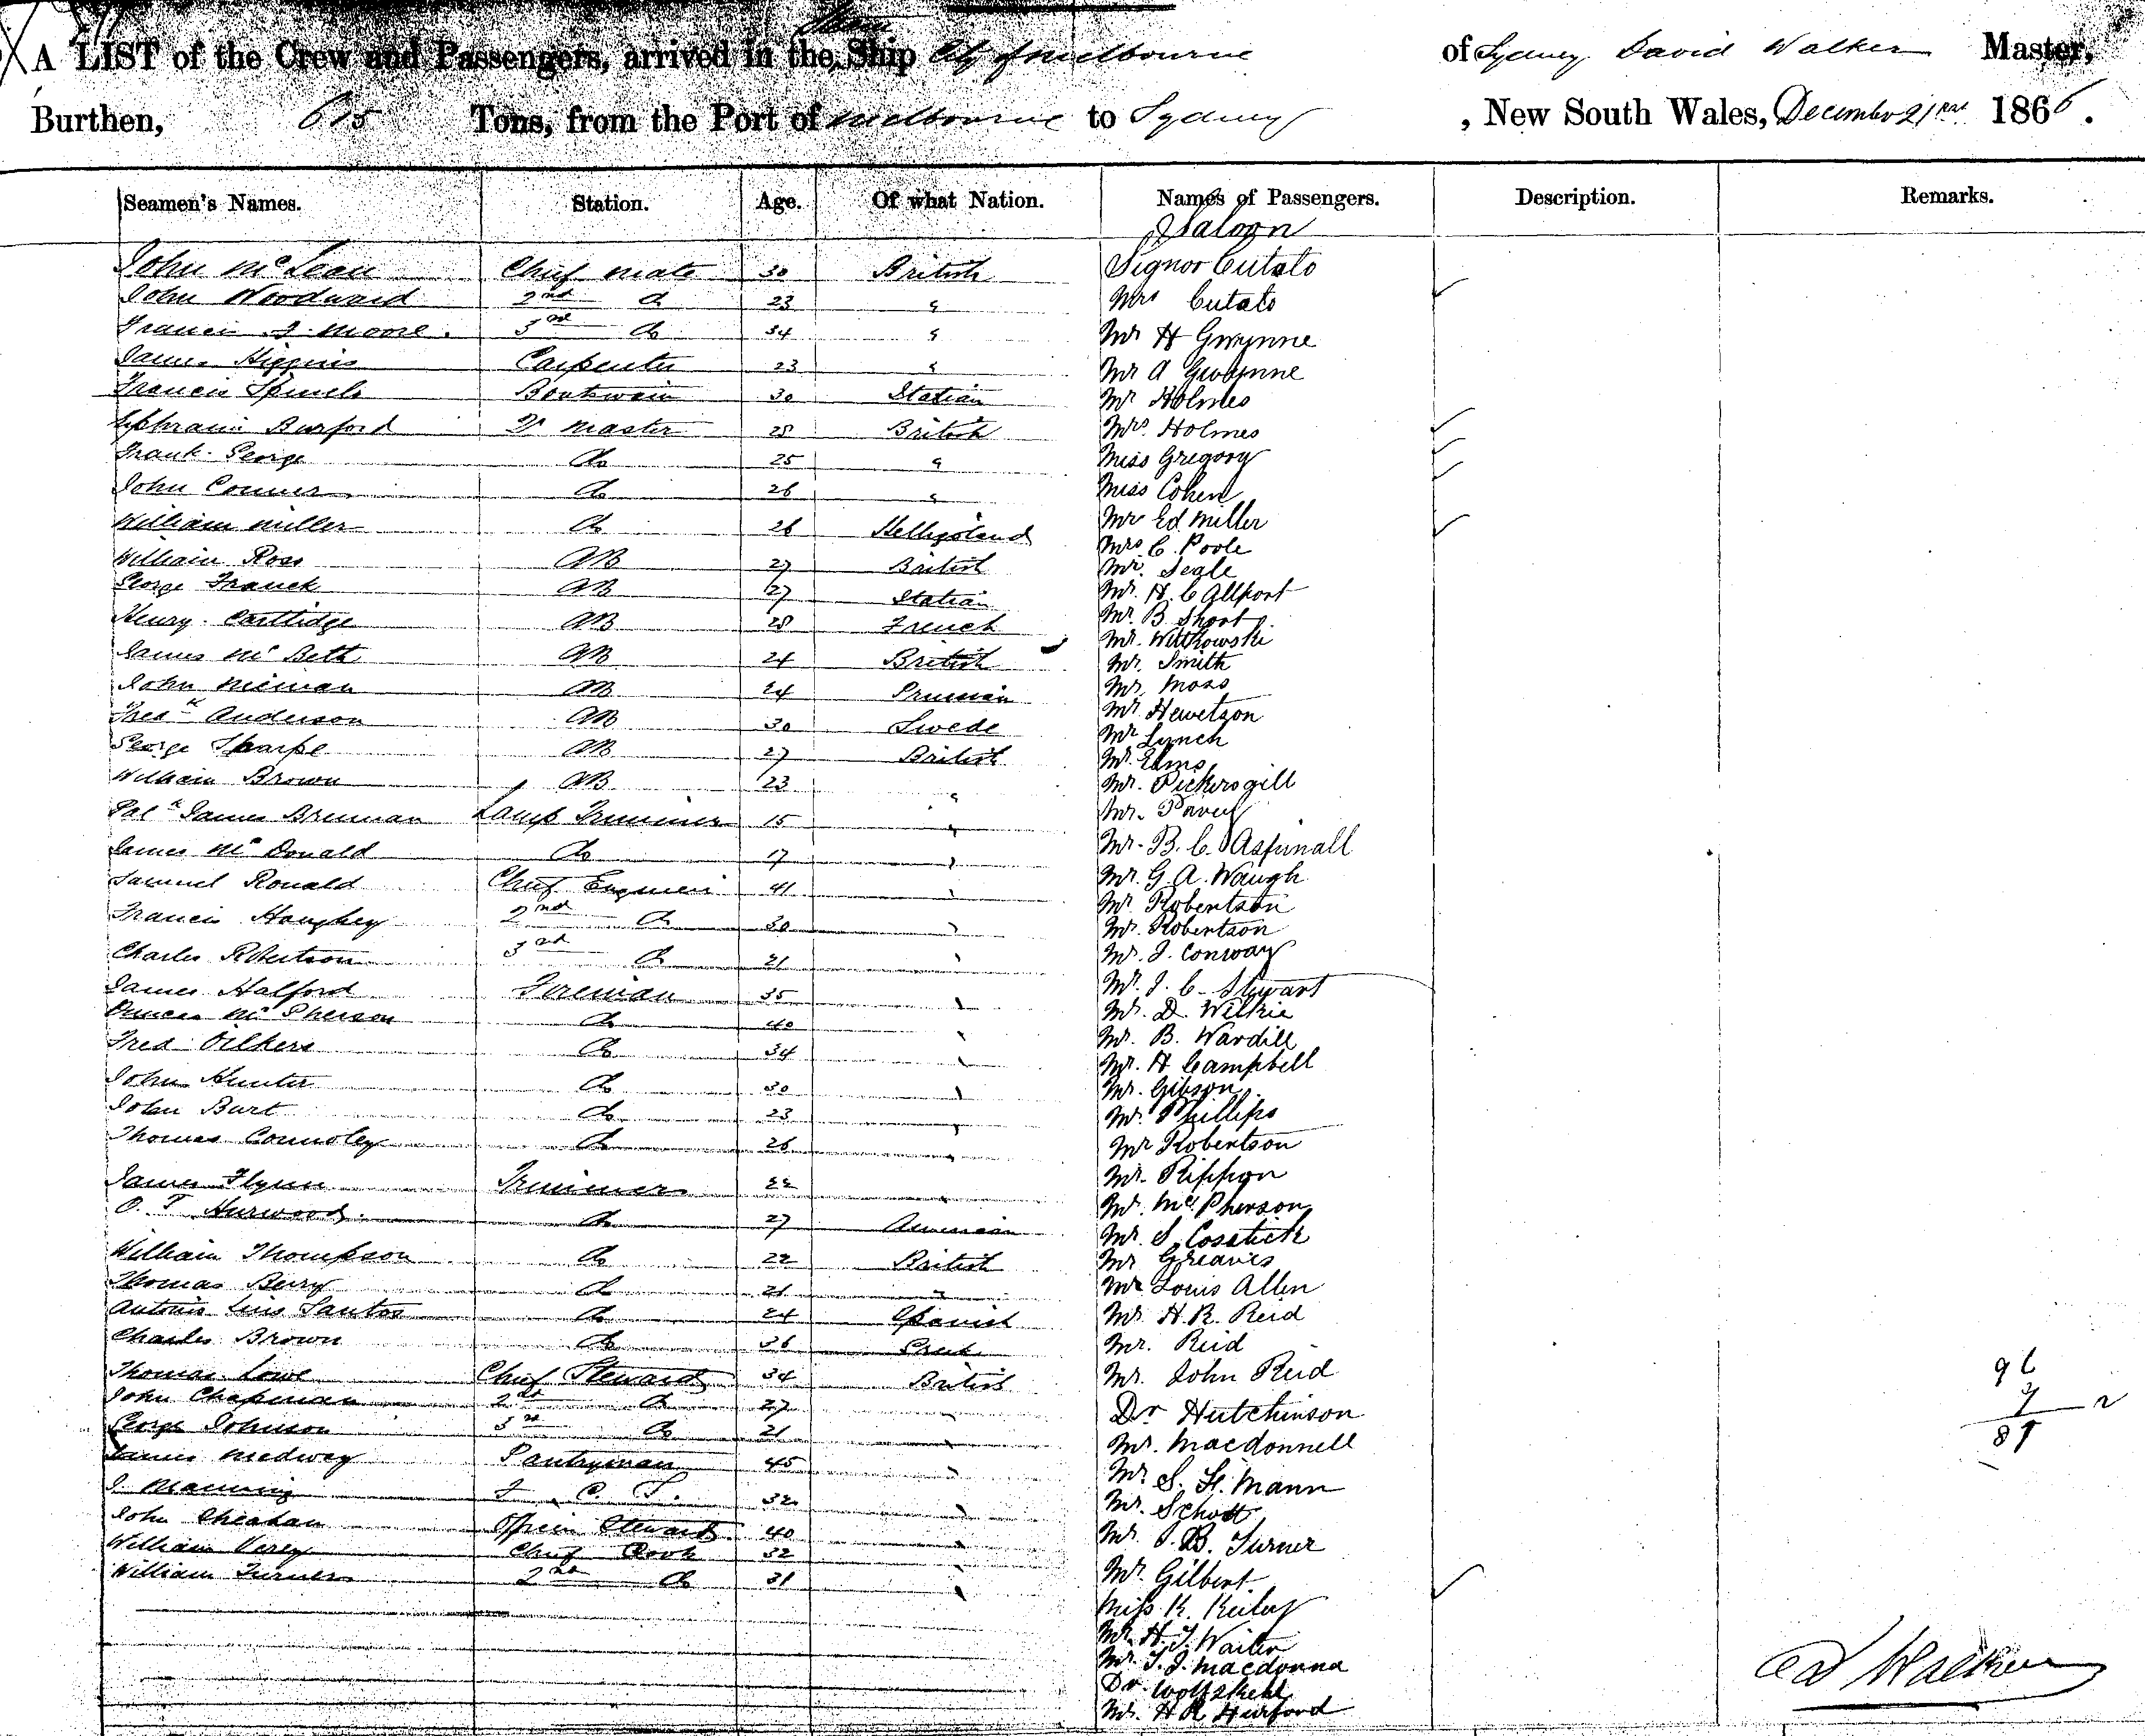 A LIST of the Crew and Passengers, arrived in the Ship City of Melbourne of Sydney David Walker Master,
Burthen, 615 Tons, from the Port of Melbourne to Sydney, New South Wales, December 21st 1866.
Seamen's Names. Station. Age. Of what Nation. Names of Passengers. Description. Remarks.
Saloon
John McLean Chief mate 30 British Signor Cutolo
John Woodward 2nd do 23 " Mrs Cutolo
Francis J. Moore 3rd do 34 " Mr H Gwynne
James Higgins Carpenter 23 " Mr A Gwynne
Francis Boatswain 30 Italian Mr Holmes
Ephraim Burford Qr Master 25 British Mrs. Holmes
Frank George do 25 " Miss Gregory
John Conner do 26 " Miss Cohen
William Miller do 26 Helligoland Mr Ed Miller
Mrs C. Poole
William Ross AB 27 British Mr. Segle
George Franck AB 27 Italian Mr. H. C Allport
Henry Cartlidge AB 28 French Mr. B. Short
Mr. Wittkowski
James McBeth AB 24 British Mr. Smith
John Nieman AB 24 Prussian Mr. Moss
Fredk Anderson AB 30 Swede Mr. Hewetson
Mr Lynch
George Sharpe AB 27 British Mr. Elms
William Brown AB 23 " Mr. Pickersgill
Patk James Brennan Lamp Trimmer 15 " Mr. Pavey
James McDonald do 17 " Mr. B. C. Aspinall
Samuel Ronald Chief Engineer 41 " Mr. G. A. Waugh
Mr Robertson
Francis Haughey 2nd do 30 " Mr. Robertson
Charles Robertson 3rd do 21 " Mr. J. Conway
James Halford Fireman 35 " Mr. J. C. Stewart
Duncan McPherson do 40 " Mr. D. Wilkie
Fred Oilkers do 34 " Mr. B. Wardill
Mr. H Campbell
John Hunter do 30 " Mr. Gibson
John Burt do 23 " Mr. Phillips
Thomas Connoley do 26 " Mr Robertson
James Flynn Trimmer 22 " Mr. Rippon
O. T. Hurwood do 27 American Mr. McPherson
Mr. S. Cosstick
William Thompson do 22 British Mr Greaves
Thomas Berry do 21 " Mr Louis Allen
Antonio Luis Santos do 24 Spanish Mr. H. R. Reid
Charles Brown do 36 Mr. Reid
Thomas Lowe Chief Steward 34 British Mr. John Reid
John Chapman 2nd do 27 " Dr Hutchinson
George Johnson 3rd do 21 " Mr. Macdonnell
James Medway Pantryman 45 " Mr S. F. Mann
J. Manning F. C. S. 32 " Mr. Schott
John Sheahan Officers Steward 40 " Mr. J. B. Turner
William Verey Chief Cook 32 "
William Turner 2nd do 31 " Mr. Gilbert
Miss K. Keiley
Mr. H. J. Waiter
Mr. T. J. Macdonna
Dr. Wolfskehl
Mr. H R Hurford
96
7
89
D Walker